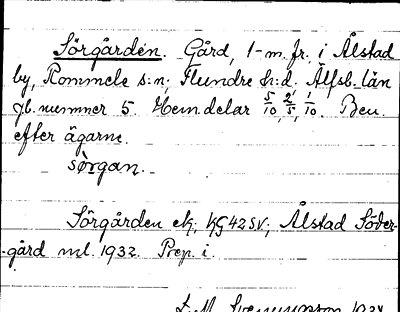 Sörgården. Gård, 1 m. fr. i Ålstad
by, Rommele s:n, Flundre h:d. Älfsb. län
Jb. nummer 5. Hemdelar 5/10, 2/5, 1/10. Ben.
efter ägarne.
sörgan.
Sörgården ek. KG42SV; Ålstad Söder-
gård ml. 1932. Prep. i.